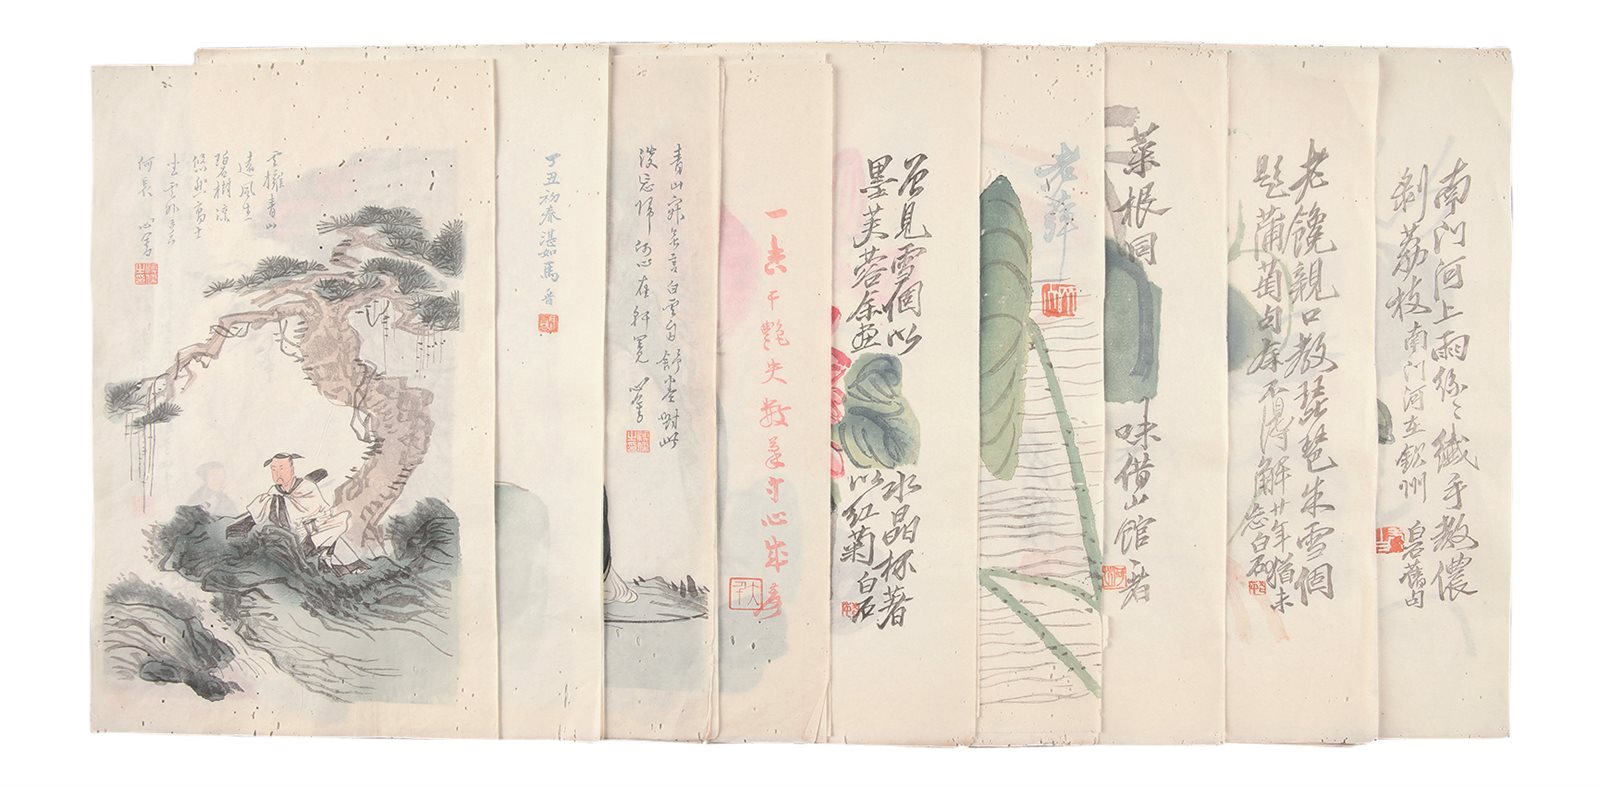 南门河上雨絲〻纖手教儂
剥荔枝南门河在欽州 白石舊句
老饞親口教琵琶朱雪個
題蒲萄句余不得解廿年猶未
忘 白石
菜根同味借山館者
老萍
曾見雪個以水晶杯著
墨芙蓉余画以紅菊 白石
一香千艷失數筆寸心成 爰
青山寂無言白雲自舒卷對此
澹忘歸何心在軒冕 心畬
丁丑初春湛如馬晉
雲擁青山
遠風生
碧樹涼
悠然高士
坐雲外意
何長 心畬